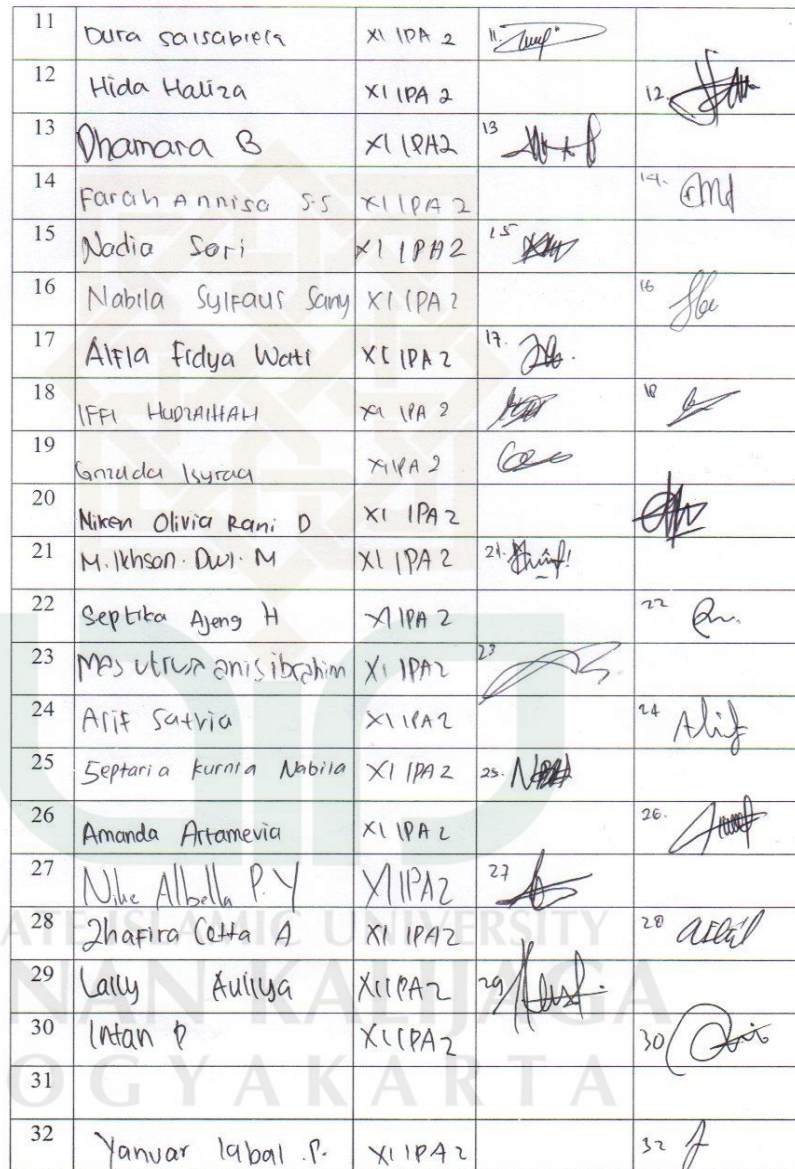 11 Dura Salsabiela XI IPA 2 11.
12 Hida Haliza XI IPA 2 12.
13 Dhamara B XI IPA2 13
14 Farah Annisa S.S XI IPA 2 14.
15 Nadia Sari XI IPA2 15
16 Nabila Sylfaus Sany XI IPA 2 16
17 Alfia Fidya Wati XI IPA 2 17.
18 IFFI HUDZAIFAH XI IPA 2 18
19 XI IPA 2
20 Niken Olivia Rani D XI IPA 2
21 M. Ikhson. Dwi. M XI IPA 2 21.
22 Septika Ajeng H XI IPA 2 22
23 anis ibrahim XI IPA2 23
24 Arif Satria XI IPA2 24 Alif
25 Septaria Kurnia Nabila XI IPA 2 25.
26 Amanda Artamevia XI IPA 2 26.
27 Nike Albella P.Y XI IPA2 27
28 Zhafira Cetta A XI IPA2 28
29 Laily Auliya XI IPA2 29
30 Intan P XI IPA2 30
31
32 Yanuar Iqbal .P. XI IPA2 32
STATE ISLAMIC UNIVERSITY
SUNAN KALIJAGA
YOGYAKARTA